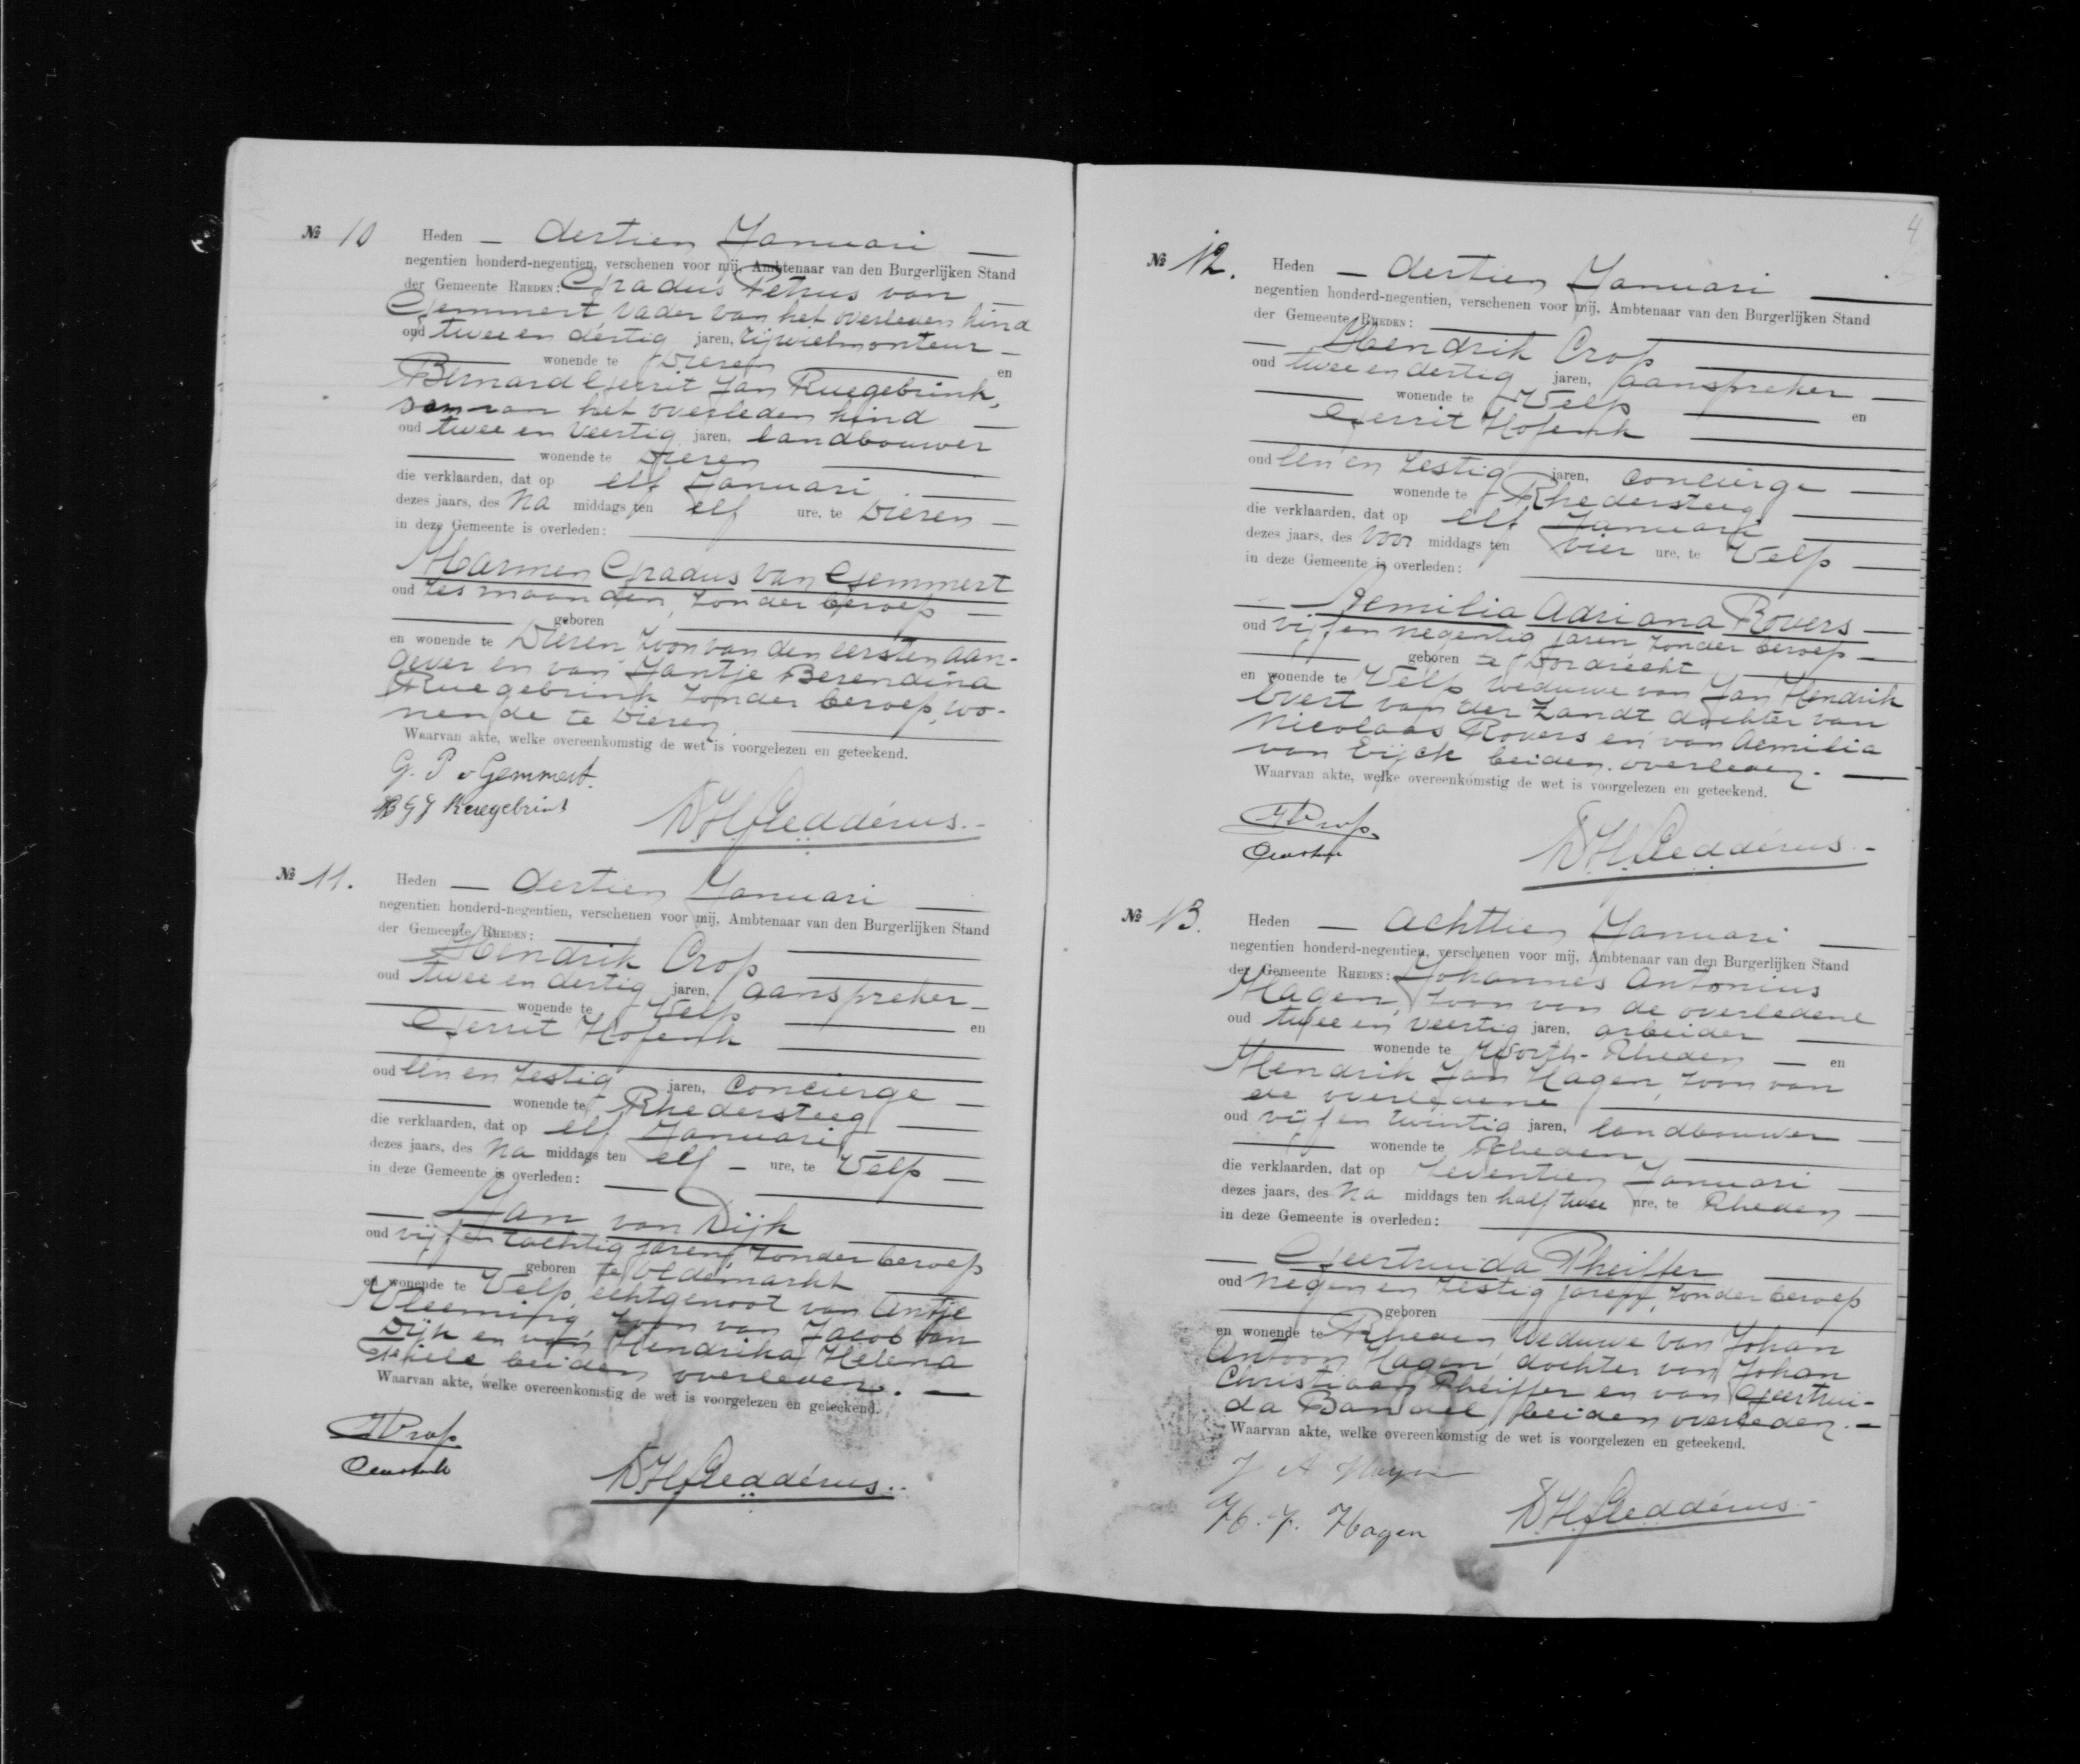 № 10 Heden — dertien Januari —
negentien honderd-negentien, verschenen voor mij, Ambtenaar van den Burgerlijken Stand
der Gemeente RHEDEN: Gradus Petrus van
Gemmert vader van het overleden kind
oud twee en dertig jaren, rijwielmonteur —
wonende te Dieren en
Bernard Gerrit Jan Ruegebrink,
oom van het overleden kind
oud twee en veertig jaren, landbouwer
wonende te Dieren
die verklaarden, dat op elf Januari
dezes jaars, des na middags ten elf ure, te Dieren —
in deze Gemeente is overleden:
Harmen Gradus van Gemmert
oud zes maanden, zonder beroep —
geboren
en wonende te Dieren, zoon van den eersten aan-
gever en van Jantje Berendina
Ruegebrink zonder beroep, wo-
nende te Dieren
Waarvan akte, welke overeenkomstig de wet is voorgelezen en geteekend.
G. P v Gemmert.
B G J Ruegebrink
№ 11. Heden — dertien Januari —
negentien honderd-negentien, verschenen voor mij, Ambtenaar van den Burgerlijken Stand
der Gemeente RHEDEN:
Hendrik Crop
oud twee en dertig jaren, aanspreker —
wonende te Velp en
Gerrit Hofenk
oud één en zestig jaren, concierge —
wonende te Rhedersteeg
die verklaarden, dat op elf Januari
dezes jaars, des na middags ten elf — ure, te Velp —
in deze Gemeente is overleden:
Jan van Dijk
oud vijf en tachtig jaren, zonder beroep
geboren te Oldemarkt
en wonende te Velp, echtgenoot van Antje
Vleeming, zoon van Jacob van
Dijk en van Hendrika Helena
beiden overleden. —
Waarvan akte, welke overeenkomstig de wet is voorgelezen en geteekend.
HCrop
4
№ 12. Heden — dertien Januari —
negentien honderd-negentien, verschenen voor mij, Ambtenaar van den Burgerlijken Stand
der Gemeente RHEDEN:
— Hendrik Crop
oud twee en dertig jaren, aanspreker —
wonende te Velp en
Gerrit Hofenk
oud één en zestig jaren, concierge —
wonende te Rhedersteeg
die verklaarden, dat op elf Januari
dezes jaars, des voor middags ten vier ure, te Velp —
in deze Gemeente is overleden:
— Aemilia Adriana Rovers —
oud vijf en negentig jaren zonder beroep —
geboren te Dordrecht
en wonende te Velp weduwe van Jan Hendrik
Evert van der Zandt dochter van
Nicolaas Rovers en van Aemilia
van Eijck beiden overleden. —
Waarvan akte, welke overeenkomstig de wet is voorgelezen en geteekend.
HCrop
№ 13. Heden — achttien Januari —
negentien honderd-negentien, verschenen voor mij, Ambtenaar van den Burgerlijken Stand
der Gemeente RHEDEN: Johannes Antonius
Hagen, zoon van de overledene
oud twee en veertig jaren, arbeider
wonende te Worth-Rheden — en
Hendrik Jan Hagen, zoon van
de overledene
oud vijf en twintig jaren, landbouwer —
wonende te Rheden
die verklaarden, dat op zeventien Januari —
dezes jaars, des na middags ten half twee ure, te Rheden —
in deze Gemeente is overleden:
— Geertruida Pheiffer
oud negen en zestig jaren, zonder beroep
geboren
en wonende te Rheden, weduwe van Johan
Antoon Hagen, dochter van Johan
Christiaan Pheiffer en van Geertrui-
da beiden overleden. —
Waarvan akte, welke overeenkomstig de wet is voorgelezen en geteekend.
J A Hagen
H. J. Hagen